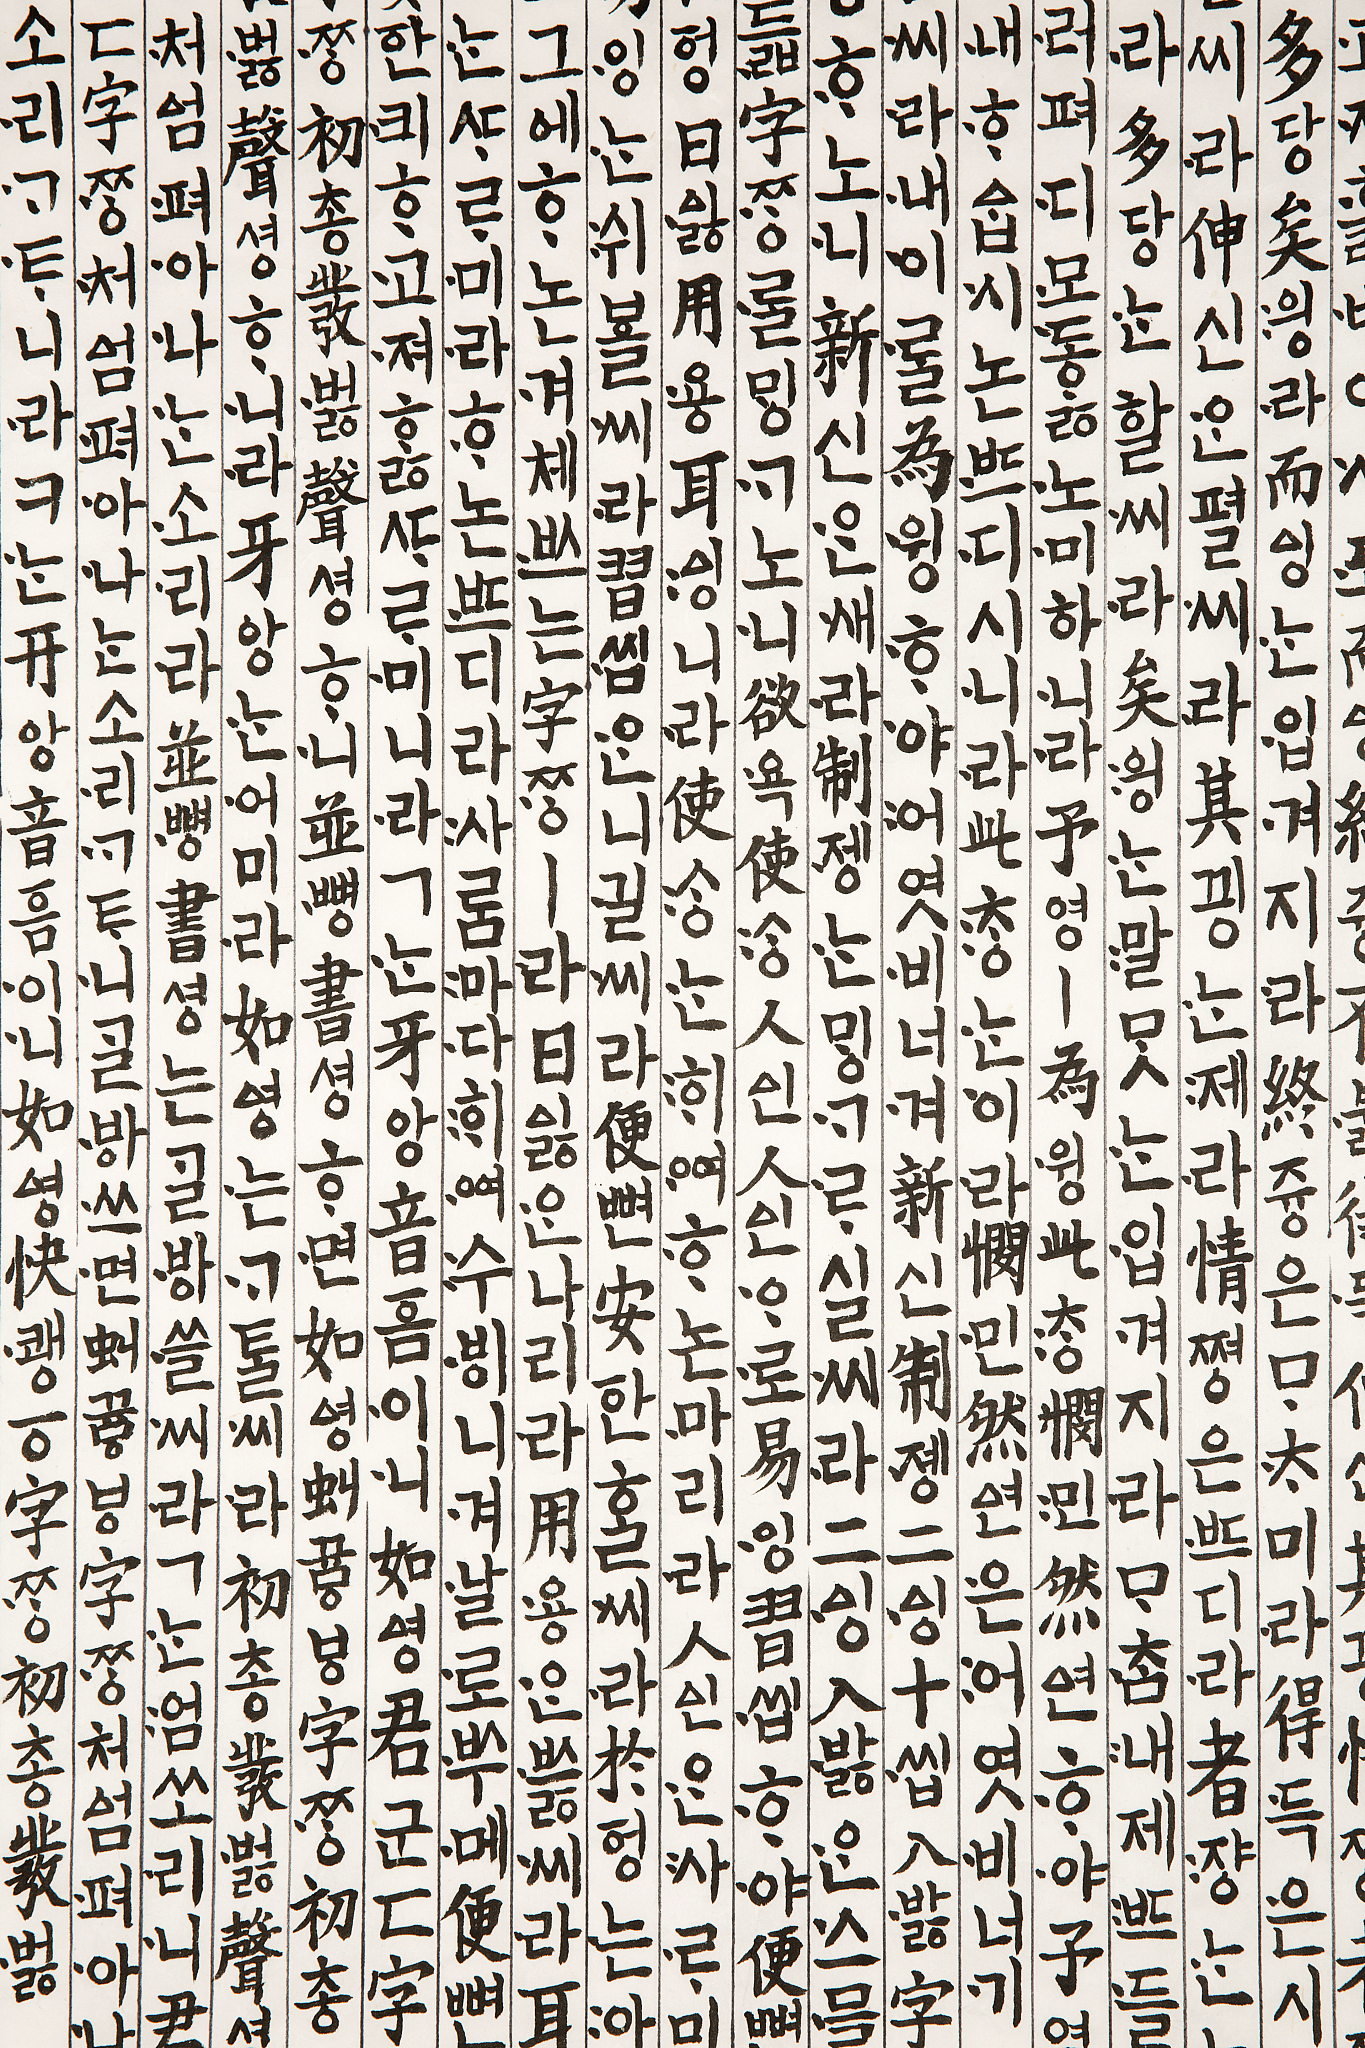 多당矣읭라而ᅀᅵᆼᄂᆞᆫ입겨지라終쥬ᇰ은ᄆᆞᄎᆞ미라得득은시
씨라伸신ᄋᆞᆫ펼씨라其끵ᄂᆞᆫ제라情쪄ᇰ은ᄠᅳ디라者쟝ᄂᆞᆫ
라多당ᄂᆞᆫ할씨라矣읭ᄂᆞᆫ말ᄆᆞᆺᄂᆞᆫ입겨지라ᄆᆞᄎᆞᆷ내제ᄠᅳ들
러펴디모ᄃᆞᇙ노미하니라予영ㅣ為윙此ᄎᆞᆼ憫민然ᅀᅧᆫᄒᆞ야予영
내ᄒᆞᅀᆞᆸ시논ᄠᅳ디시니라此ᄎᆞᆼᄂᆞᆫ이라憫민然ᅀᅧᆫ은어엿비너기
씨라내이ᄅᆞᆯ為윙ᄒᆞ야어엿비너겨新신制졩二ᅀᅵᆼ十씹八바ᇙ字
ᄒᆞ노니新신ᄋᆞᆫ새라制졩ᄂᆞᆫᄆᆡᇰᄀᆞᄅᆞ실씨라二ᅀᅵᆼ八바ᇙᄋᆞᆫ스믈
듧字ᄍᆞᆼᄅᆞᆯᄆᆡᇰᄀᆞ노니欲욕使ᄉᆞᆼ人ᅀᅵᆫ人ᅀᅵᆫᄋᆞ로易잉習씹ᄒᆞ야便뼌
헝日ᅀᅵᇙ用용耳ᅀᅵᆼ니라使ᄉᆞᆼᄂᆞᆫᄒᆡᅇᅧᄒᆞ논마리라人ᅀᅵᆫᄋᆞᆫ사ᄅᆞ미
잉ᄂᆞᆫ쉬ᄫᅳᆯ씨라習씹ᄋᆞᆫ니길씨라便뼌安한ᄒᆞᆯ씨라於헝는아
그에ᄒᆞ논겨체ᄡᅳ는字ᄍᆞᆼㅣ라日ᅀᅵᇙᄋᆞᆫ나리라用용ᄋᆞᆫᄡᅳᇙ씨라耳
ᄂᆞᆫᄯᆞᄅᆞ미라ᄒᆞ논ᄠᅳ디라사ᄅᆞᆷ마다ᄒᆡᅇᅧ수ᄫᅵ니겨날로ᄡᅮ메便뼌
한킈ᄒᆞ고져ᄒᆞᇙᄯᆞᄅᆞ미니라ㄱᄂᆞᆫ牙앙音흠이니如ᅀᅧᆼ君군ㄷ字
ᄍᆞᆼ初총發버ᇙ聲셔ᇰᄒᆞ니並뼈ᇰ書셔ᇰᄒᆞ면如ᅀᅧᆼ虯뀨ᇢㅸ字ᄍᆞᆼ初총
버ᇙ聲셔ᇰᄒᆞ니라牙앙ᄂᆞᆫ어미라如ᅀᅧᆼ는ᄀᆞᄐᆞᆯ씨라初총發버ᇙ聲셔ᇰ
처ᅀᅥᆷ펴아나ᄂᆞᆫ소리라並뼈ᇰ書셔ᇰ는ᄀᆞᆯᄫᅡ쓸씨라ㄱᄂᆞᆫ엄쏘리니君
ㄷ字ᄍᆞᆼ처ᅀᅥᆷ펴아나ᄂᆞᆫ소리ᄀᆞᄐᆞ니ᄀᆞᆯᄫᅡ쓰면虯뀨ᇢㅸ字ᄍᆞᆼ처ᅀᅥᆷ펴아나
소리ᄀᆞᄐᆞ니라ㅋᄂᆞᆫ牙앙音흠이니如ᅀᅧᆼ快쾡ㆆ字ᄍᆞᆼ初총發버ᇙ